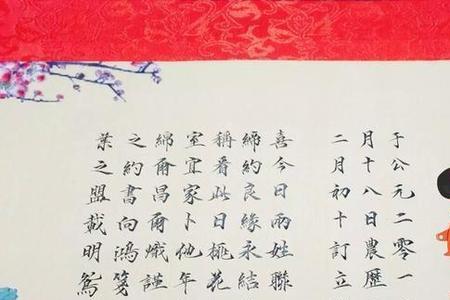 于公元二零一
月十八日農歷
二月初十訂立
喜今日兩姓聯
締約良緣永結
稱看此日桃花
室宜家卜他年
綿爾昌爾熾謹
之約書向鴻箋
葉之盟載明鴛